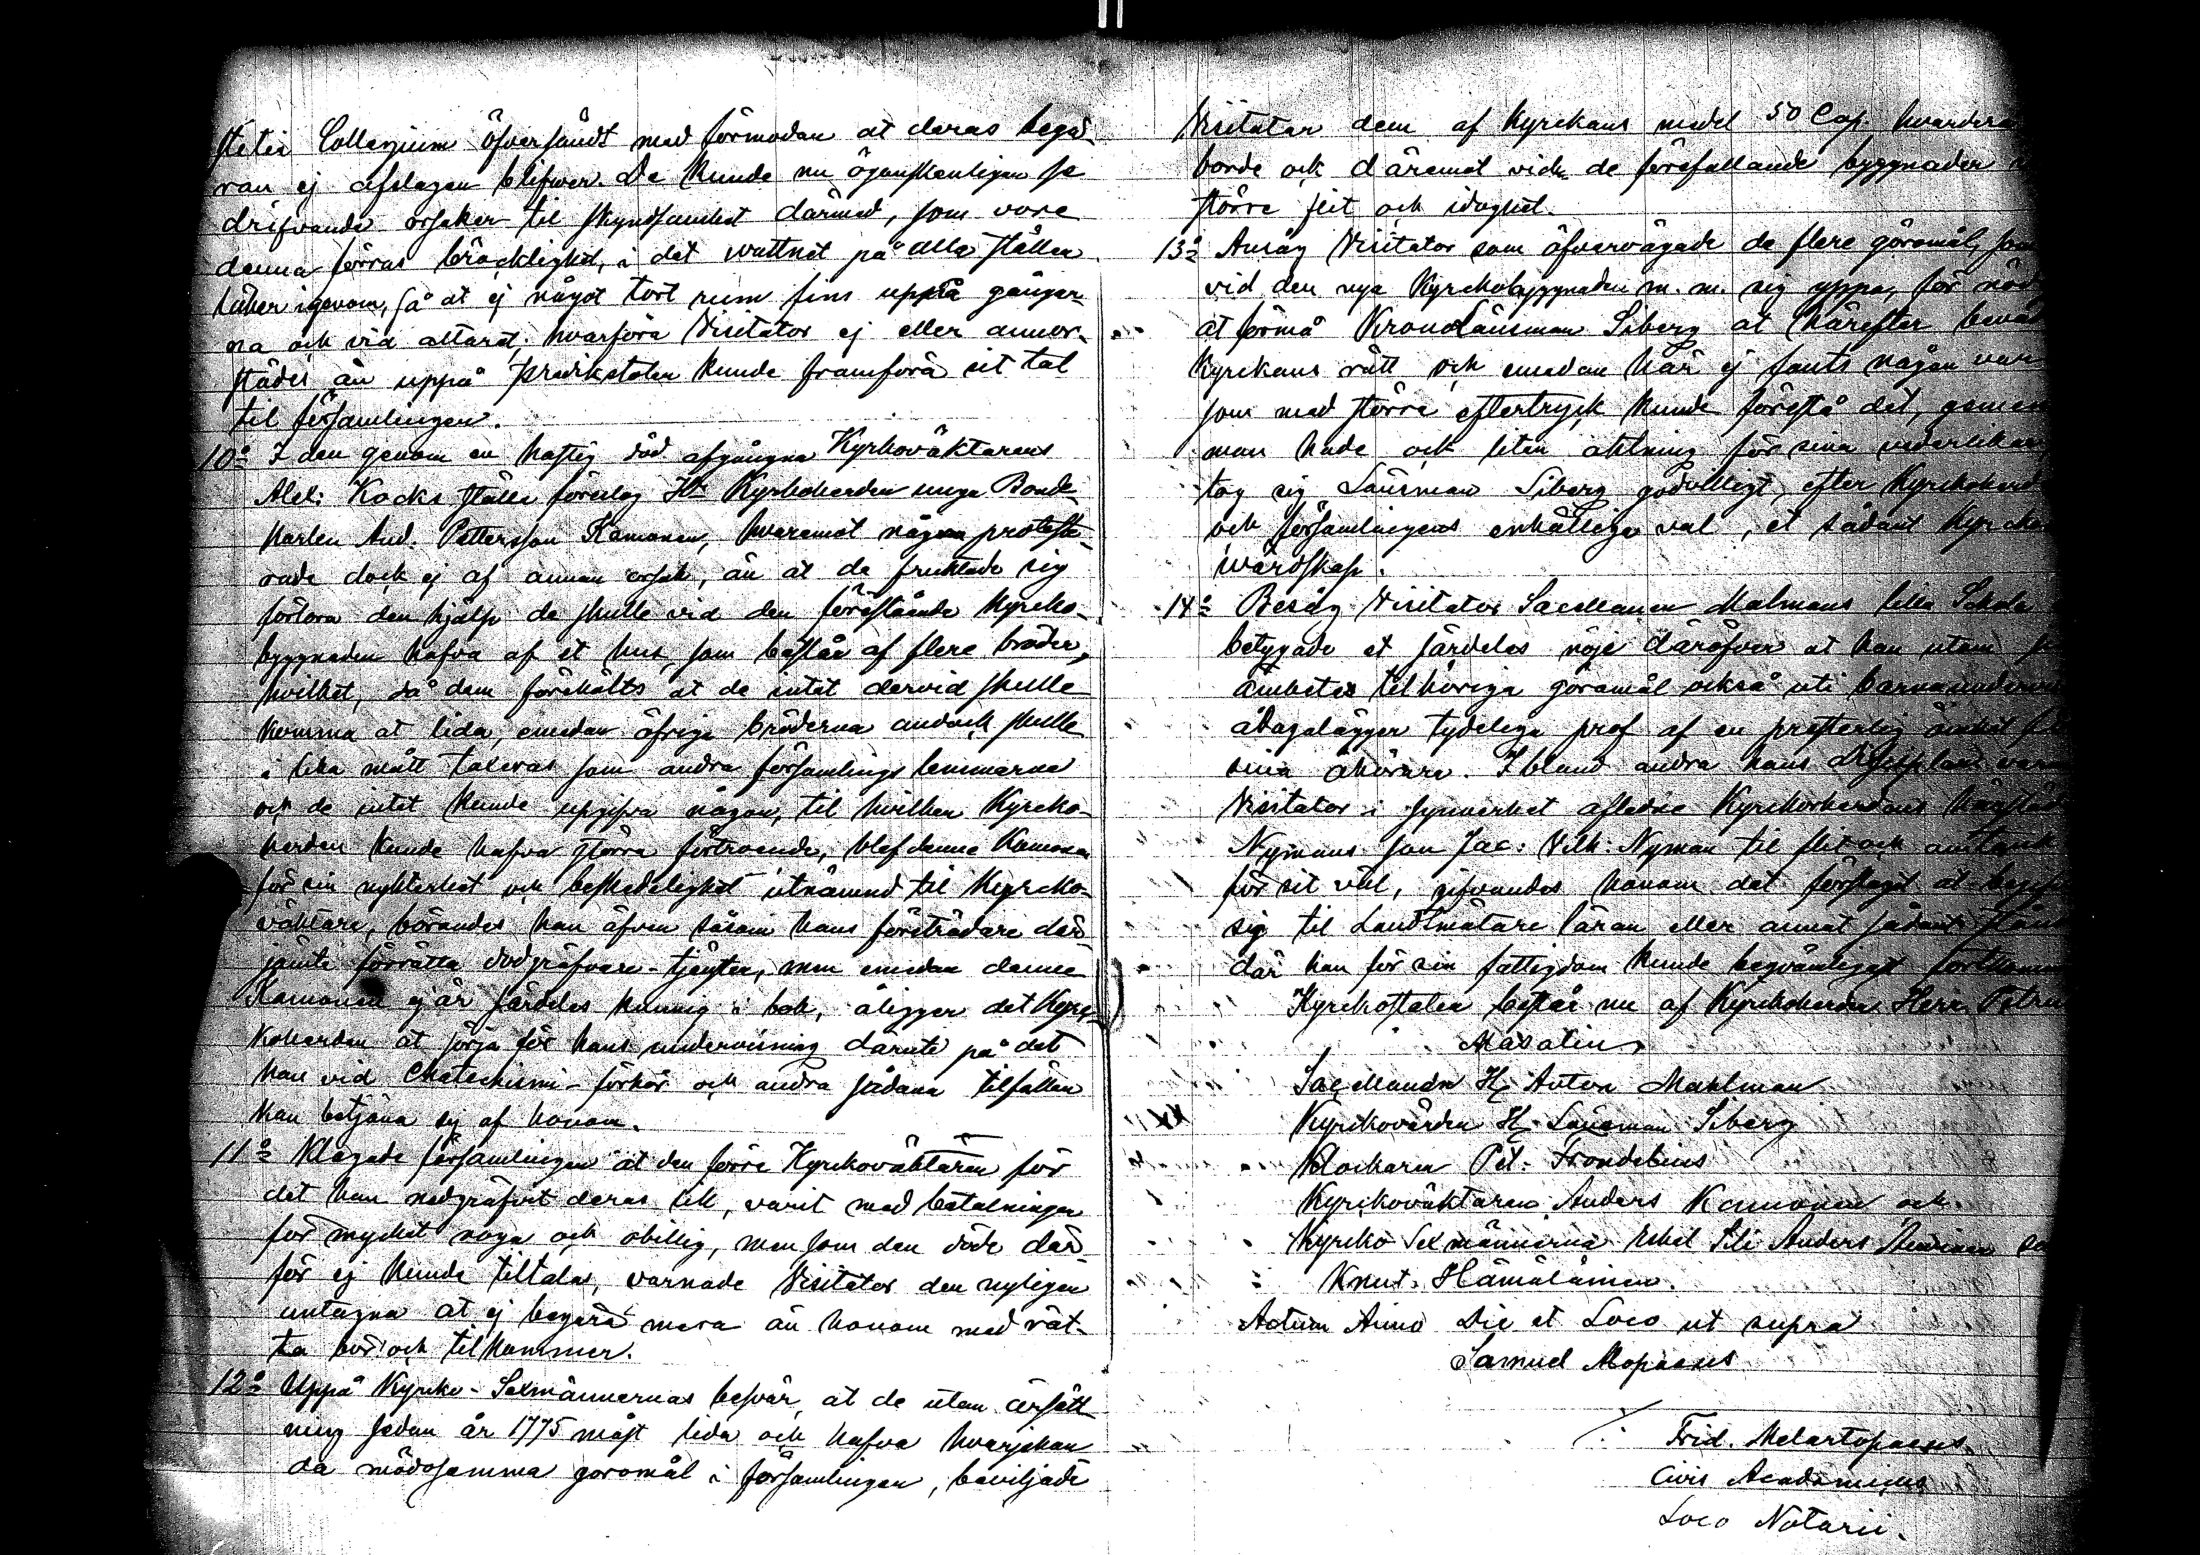 stetii Collegium öfversändt med förmodan at deras begä-
ran ej afslagen blifwer. De kunde nu ögonskenligen se
drifvande orsaker til skyndsamhet därmed, som vore
denna förras bräcklighet, i det wattnet på alla ställen
igenom, så at ej något tort rum fins uppå gångar-
na och vid altaret; hvarföre Visitator ej eller annor-
städes än uppå predikstolen kunde framföra sit tal
til församlingen.
10:o I den genom en hastig död afgångna Kyrkoväktarens
Alel: Kocks ställe föreslog Hr Kyrkoherden unga Bonde-
karlen And. Pettersson Kamonen, hvaremot någre proteste-
rade dock ej af annan orsak, än at de fruktade sig
förlora den hjälp de skulle vid den förestående kyrko-
byggnaden hafva af et hus, som består af flere bröder,
hvilket, då dem förehölts at de intet dervid skulle
komma at lida, emedan öfrige bröderna ändock skulle
i lika mått taxeras som andra församlings lemmarne
och de intet kunde upgifva någon, til hvilken Kyrko-
herden kunde hafva större förtroende, blef denne Kamonen
för sin nykterhet och beskedelighet utnämnd til Kyrcko-
väktare, börandes han äfven såsom hans företrädare der-
jämte förrätta dödgräfvare-tjensten, men emedan denne
Kamonen ej är särdeles kunnig i bok, åligger det Kyrc-
koherden at sörja för hans undervisning däruti på det
han vid Chatechismi-förhör och andra sådana tilfällen
kan betjäna sig af honom.
11:o Klagade församlingen at den förre Kyrkoväktaren för
det han nedgräfvit deras lik, varit med betalningen
för mycket noga och obillig, men som den döde där-
för ej kunde tiltalas, varnade Visitator den nyligen
antagna at ej begära mera än honom med rät-
ta bör och tilkommer.
12:o Uppå Kyrko-Sexmännernas besvär, at de utan ersätt-
ning sedan år 1775 måst lida och hafva hvarjehan-
da mödosamma göromål i församlingen, beviljade
Visitator dem af Kyrckans medel 50 Cop. hvardera
borde och däremot vid de förefallande byggnader
större flit och idoghet.
13:o Ansåg Visitator som öfvervägade de flere göromål, som
vid den nya Kyrckobyggnaden m. m. sig yppa, för nöd
at förmå KronoLänsman Siberg at härefter bevaka
Kyrckans rätt och emedan här ej fants någon
som med större eftertryck kunde förestå det,
man hade och liten aktning för sina vederlikar
tog sig Länsman Siberg godvilligt, efter Kyrckoherd
och församlingens enhällige val, et sådant Kyrcko
wärdskap.
14:o Besåg Visitator Sacellanen Malmans lilla Schola
betygade et särdeles nöje däröfver at han utom
ämbetes tilhöriga göromål också uti barnaunder
ådagalägger tydeliga prof af en presterlig ömhet
sina åhörare. Ibland andra hans
Visitator i synnerhet aflidne Kyrckoherdens
Nymans son Jac: Vilh: Nyman til flit och
för sit väl, gifvandes honom det förslaget at
sig til Landtmätare läran eller annat sådant
där han för sin fattigdom kunde beqvämligast fortkomma
Kyrckostaten består nu af Kyrckoherden Herr Petrus
Masalin,
Sacellanen H. Anton Mahlman
Kyrckovärden H. Länsman Siberg
Klockaren Pet. Frondelius
Kyrckoväktaren Anders Kamonen och
Kyrcko Sexmännerna Anders
Knut Hämäläinen.
Actum Anno Die et Loco ut supra
Samuel
Frid.
Civis Academicus
Loco Notarii.